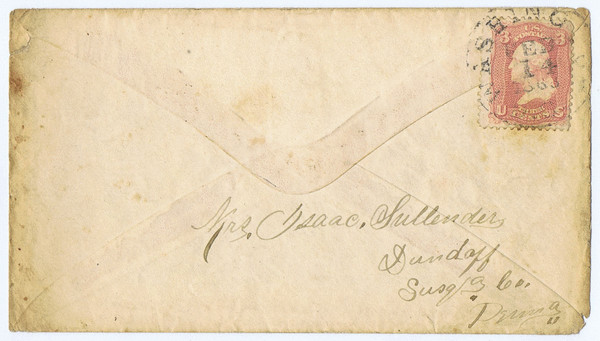 WASHING
14
1863
3 3
U.S. POSTAGE
THREE CENTS
Mrs. Isaac, Sullender,
Dundaff
Susq'a Co.
Penna